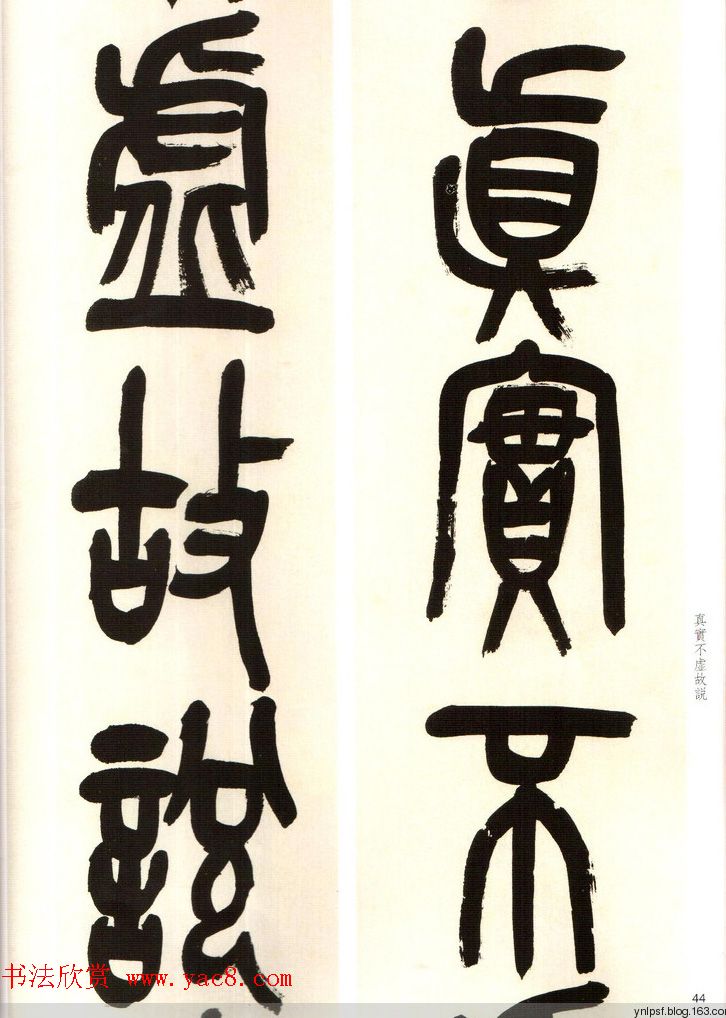 真實不
虛故說
真實不虛故説
44
书法欣赏 www.yac8.com
ynlpsf.blog.163.co